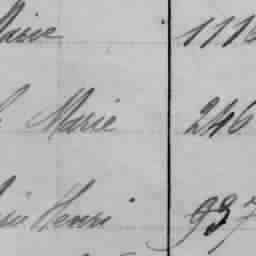 Marie 1116
Marie 246
Henri 937